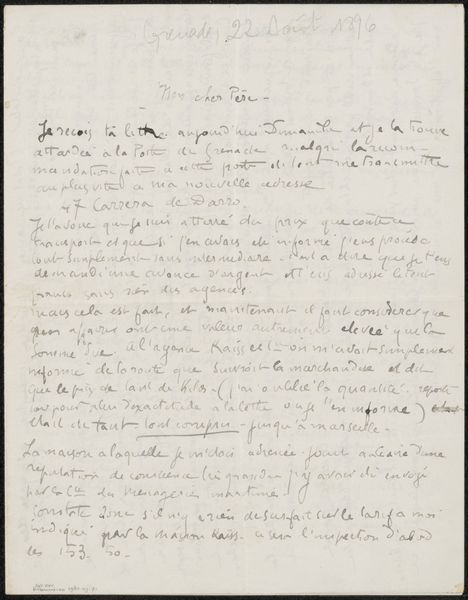 Grenade, 22 Août 1896
Mon cher Père -
Je reçois ta lettre aujourd'hui Dimanche et je la trouve
attardée à la Poste de Grenade malgré la recom-
mandation faite à cette poste de me transmettre
au plus vite à ma nouvelle adresse
47 Carrera de Darro.
Je t'avoue que je suis atterré du prix que coûte ce
transport et que si j'en avais été informé j'eus procédé
tout simplement sans intermédiaire c'est à dire que je t'eus
demandé une avance d'argent et l'eus adressé le tout
sans des agences.
mais cela est fait, et maintenant il faut considérer que
mes affaires ont une valeur autrement elevée que la
somme due. A l'agence Kaiss et Cie on m'avait simplement
informé de la route que suivrait la marchandise et dit
que le prix de tant de kilos - (j'ai oublié la quantité. reporte
toi pour plus d'exactitude à la lettre où je t'en informe)
était de tant tout compris - jusqu'à marseille -
La maison à laquelle je m'etais adressé jouit d'une
reputation de conscience
par la Cie des Messageries maritimes.
Constate donc s'il n'y a rien de surfait sur le tarif a moi
indiqué par la maison Kaiss. l'inspection d'abord
des 153. 50.